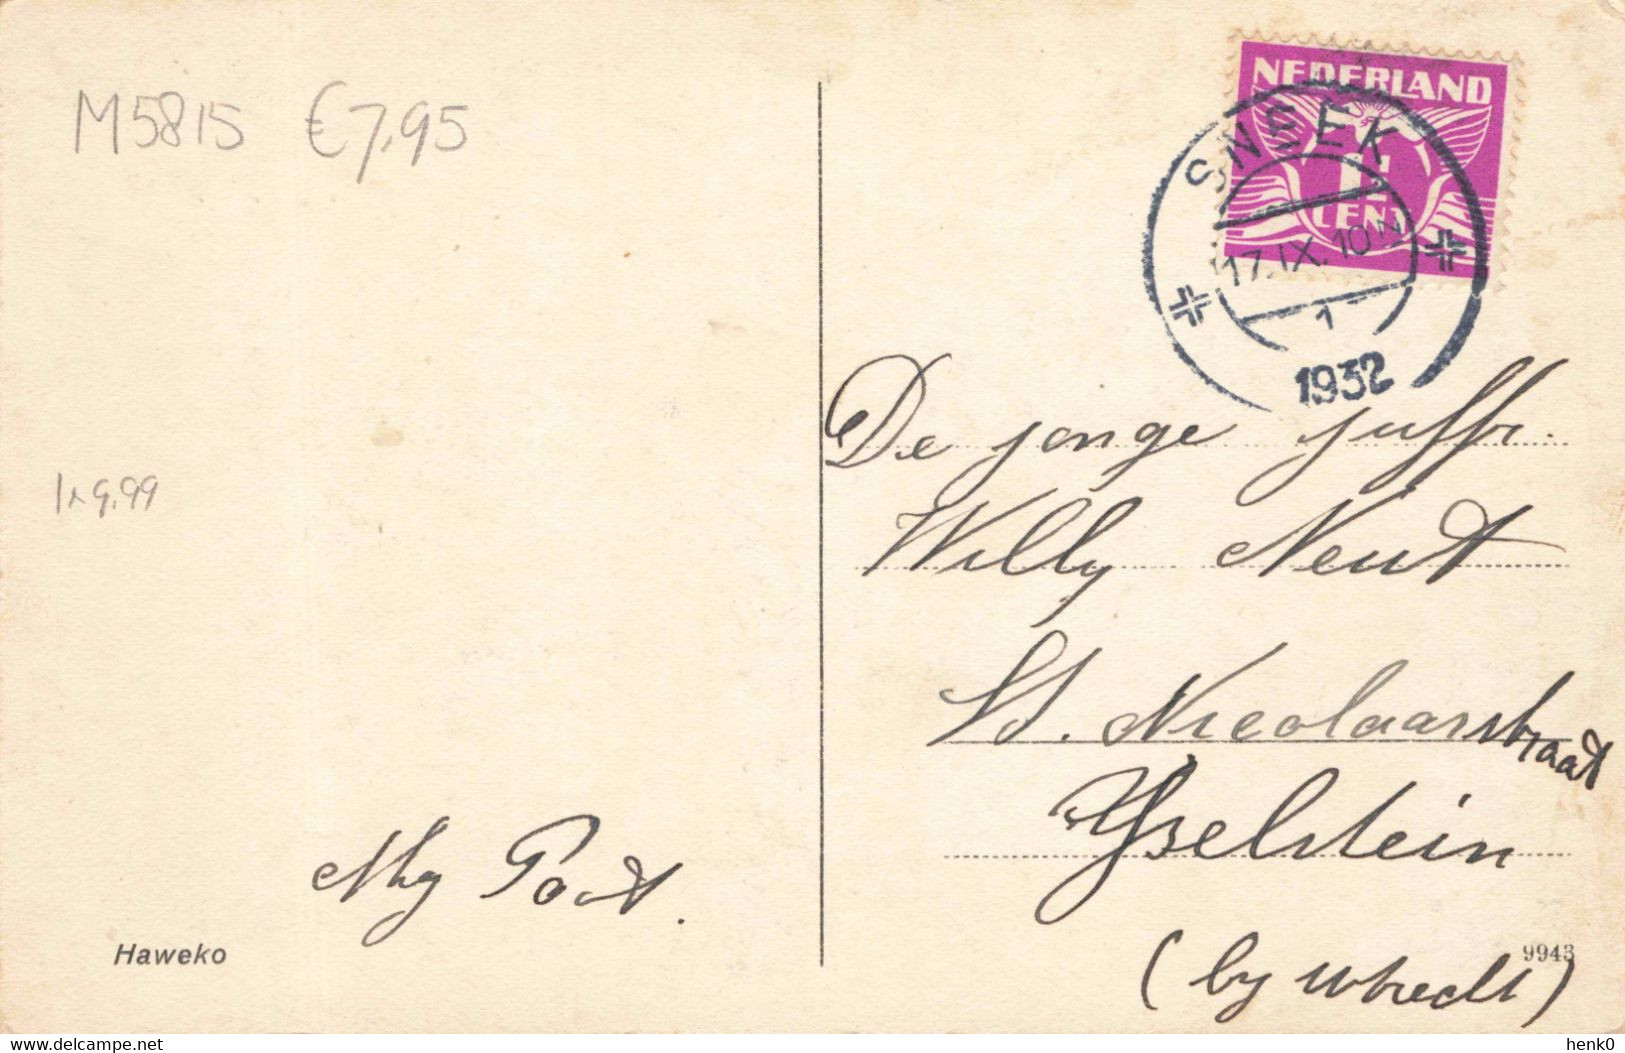 M5815 €7,95
NEDERLAND
1½
CENT
SNEEK
17.IX.10
1
1932
De jonge juffr.
Willy Neut
1x9.99
St. Nicolaasstraat
IJselstein
(by Utrecht)
Post.
Haweko
9943
www.delcampe.net
henk0